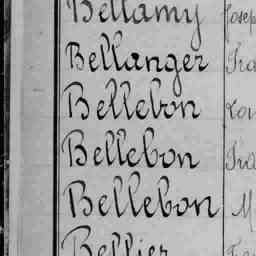 Bellamy Josep
Bellanger Fra
Bellebon Lou
Bellebon Fra
Bellebon M
Bellier Fra